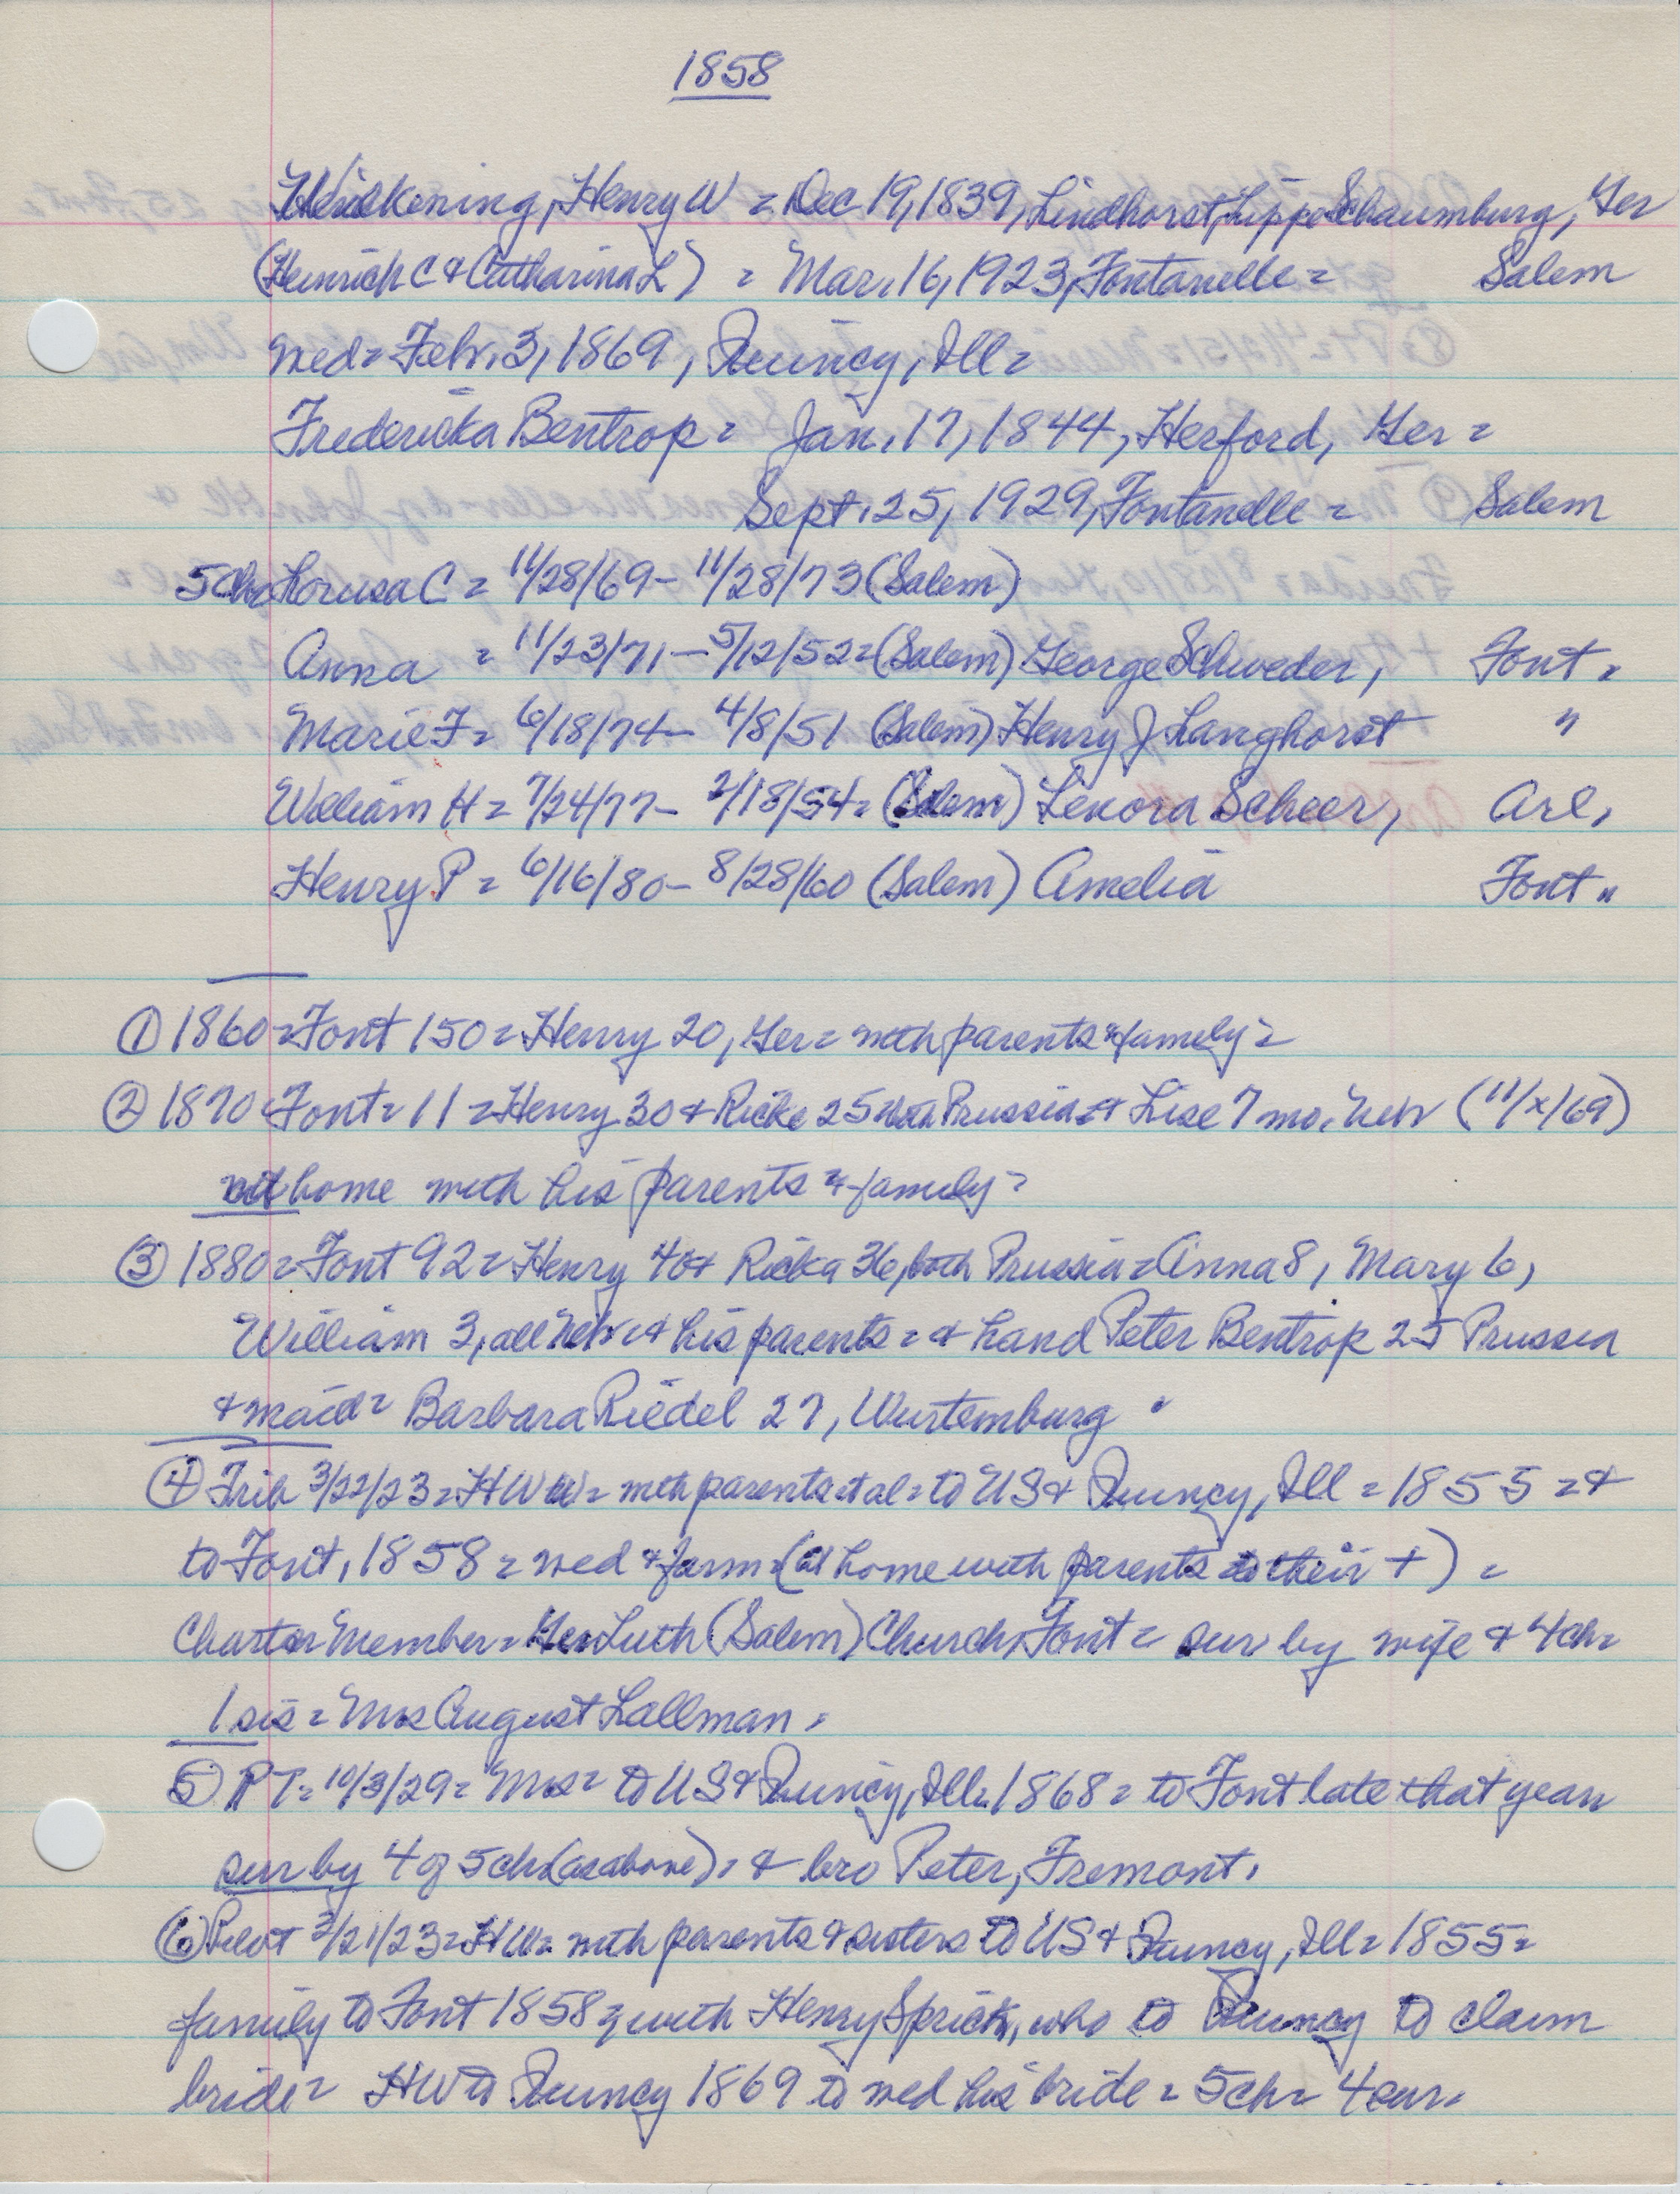 1858
Wilkening, Henry W = Dec 19, 1839, Lindhorst, Lippe Schaumburg, Ger
(Heinrich C & Catharina L) = Mar. 16, 1923, Fontanelle = Salem
wed = Febr. 3, 1869, Quincy, Ill =
Fredericka Bentrop = Jan. 17, 1844, Herford, Ger =
Sept. 25, 1929, Fontanelle = Salem
5 ch = Lousa C = 11/28/69 - 11/28/73 (Salem)
Anna = 11/23/71 - 5/12/52 = (Salem) George Schweder, Font =
Marie F = 6/18/74 - 4/8/51 (Salem) Henry J Langhorst "
William H = 7/24/77 - 2/18/54 = (Salem) Lenora Scheer, Arl,
Henry P = 6/16/80 - 8/28/60 (Salem) Amelia Font "
① 1860 = Font 150 = Henry 20, Ger = with parents & family =
② 1870 Font = 11 = Henry 30 & Ricke 25 both Prussia = & Lise 7 mo. Nebr (11/x/69)
at home with his parents & family =
③ 1880 = Font 92 = Henry 40 & Ricka 36, both Prussia = Anna 8, Mary 6,
William 3, all Nebr = & his parents = & hand Peter Bentrop 25 Prussia
& maid = Barbara Riedel 27, Wurtemburg "
④ Trib 3/22/23 = HWW = with parents et al = to US & Quincy, Ill = 1855 = &
to Font, 1858 = wed & farm = (at home with parents to their +) =
Charter Member = Ger Luth (Salem) Church, Font = sur by wife & 4 ch =
1 sis = Mrs August Lallman =
⑤ PT = 10/3/29 = Mrs = to US & Quincy, Ill. 1868 = to Font late that year
sur by 4 of 5 ch (as above) = & bro Peter, Fremont.
⑥ Pilot 3/21/23 = HW = with parents & sisters to US & Quincy, Ill = 1855 =
family to Font 1858 = with Henry Sprick, who to Quincy to claim
bride = HW to Quincy 1869 to wed his bride = 5 ch = 4 sur.